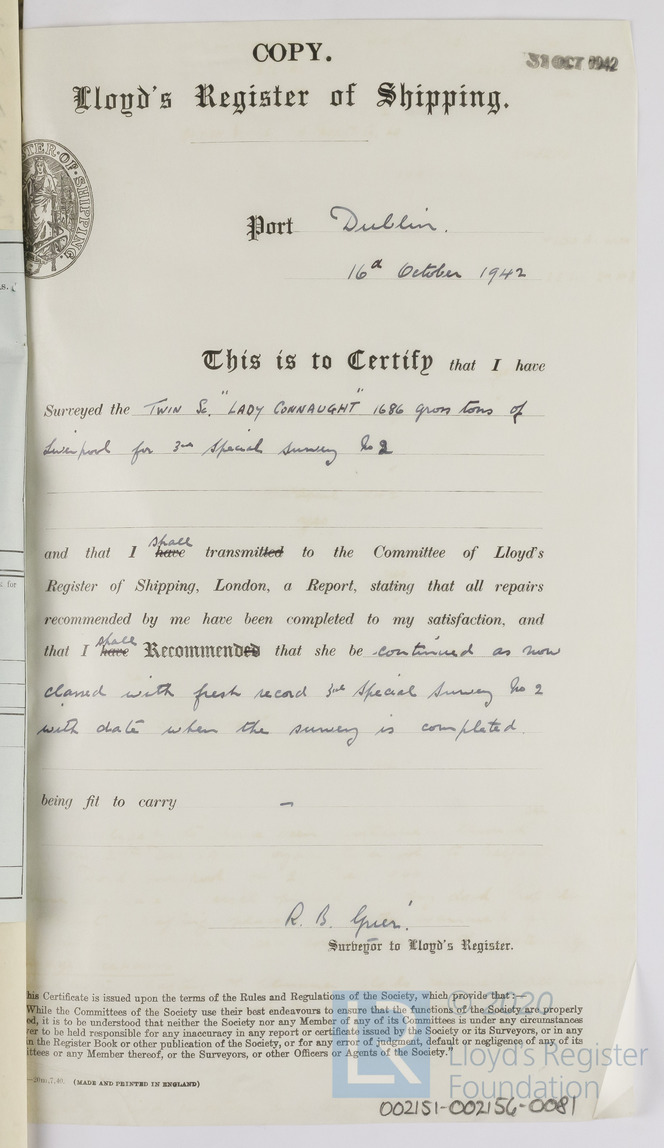 COPY.
31 OCT 1942
Lloyd's Register of Shipping.
TER·OF·SHIPPING.
Port Dublin.
16th October 1942
This is to Certify that I have
Surveyed the TWIN Sc. "LADY CONNAUGHT" 1686 gross tons of
Liverpool for 3rd Special Survey No 2
and that I have shall transmitted to the Committee of Lloyd's
Register of Shipping, London, a Report, stating that all repairs
recommended by me have been completed to my satisfaction, and
that I have shall Recommended that she be continued as now
classed with fresh record 3rd Special Survey No 2
with date when the survey is completed.
being fit to carry –
R. B. Grier.
Surveyor to Lloyd's Register.
his Certificate is issued upon the terms of the Rules and Regulations of the Society, which provide that :—
While the Committees of the Society use their best endeavours to ensure that the functions of the Society are properly
ed, it is to be understood that neither the Society nor any Member of any of its Committees is under any circumstances
er to be held responsible for any inaccuracy in any report or certificate issued by the Society or its Surveyors, or in any
n the Register Book or other publication of the Society, or for any error of judgment, default or negligence of any of its
ittees or any Member thereof, or the Surveyors, or other Officers or Agents of the Society."
—20m,7,40. (MADE AND PRINTED IN ENGLAND)
© 2020
LR
Lloyd's Register
Foundation
002151-002156-0081